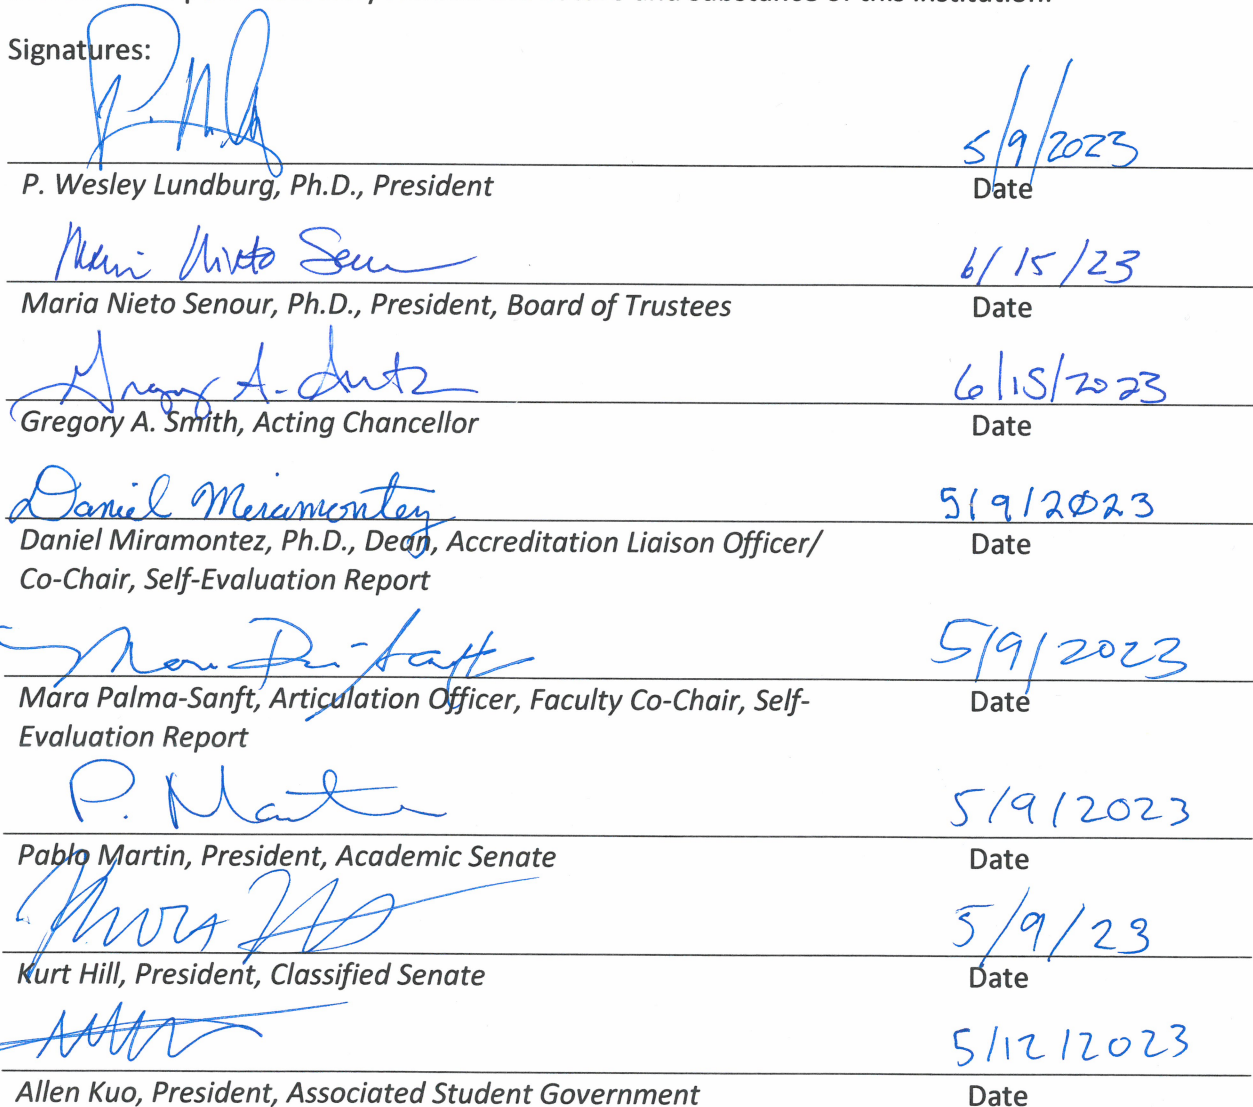 and substance of this institution.
Signatures:
5/9/2023
P. Wesley Lundburg, Ph.D., President Date
Maria Nieto Senour 6/15/23
Maria Nieto Senour, Ph.D., President, Board of Trustees Date
Gregory A. Smith 6/15/2023
Gregory A. Smith, Acting Chancellor Date
Daniel Miramontez 5/9/2023
Daniel Miramontez, Ph.D., Dean, Accreditation Liaison Officer/ Date
Co-Chair, Self-Evaluation Report
5/9/2023
Mara Palma-Sanft, Articulation Officer, Faculty Co-Chair, Self- Date
Evaluation Report
P. Martin 5/9/2023
Pablo Martin, President, Academic Senate Date
5/9/23
Kurt Hill, President, Classified Senate Date
5/12/2023
Allen Kuo, President, Associated Student Government Date